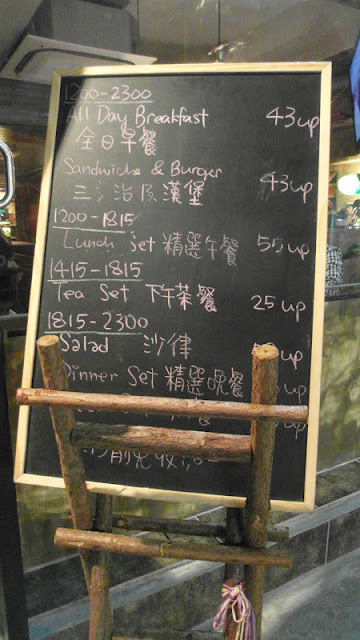 1200-2300
All Day Breakfast 43up
全日早餐
Sandwichs & Burger 43up
三文治及漢堡
1200-1815
Lunch set 精選午餐 50up
1415-1815
Tea Set 下午茶餐 25up
1815-2300
Salad 沙律 up
Dinner Set 精選晚餐 up
up